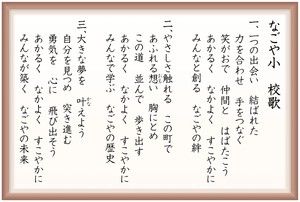 なごや小 校歌
一、一つの出会い 結ばれた
力を合わせ 手をつなぐ
笑がおで 仲間と はばたこう
あかるく なかよく すこやかに
みんなと創る なごやの絆
二、やさしさ触れる この町で
あふれる想い 胸にとめ
この道 並んで 歩き出す
あかるく なかよく すこやかに
みんなで学ぶ なごやの歴史
三、大きな夢を 叶えよう
自分を見つめ 突き進む
勇気を 心に 飛び出そう
あかるく なかよく すこやかに
みんなが築く なごやの未来